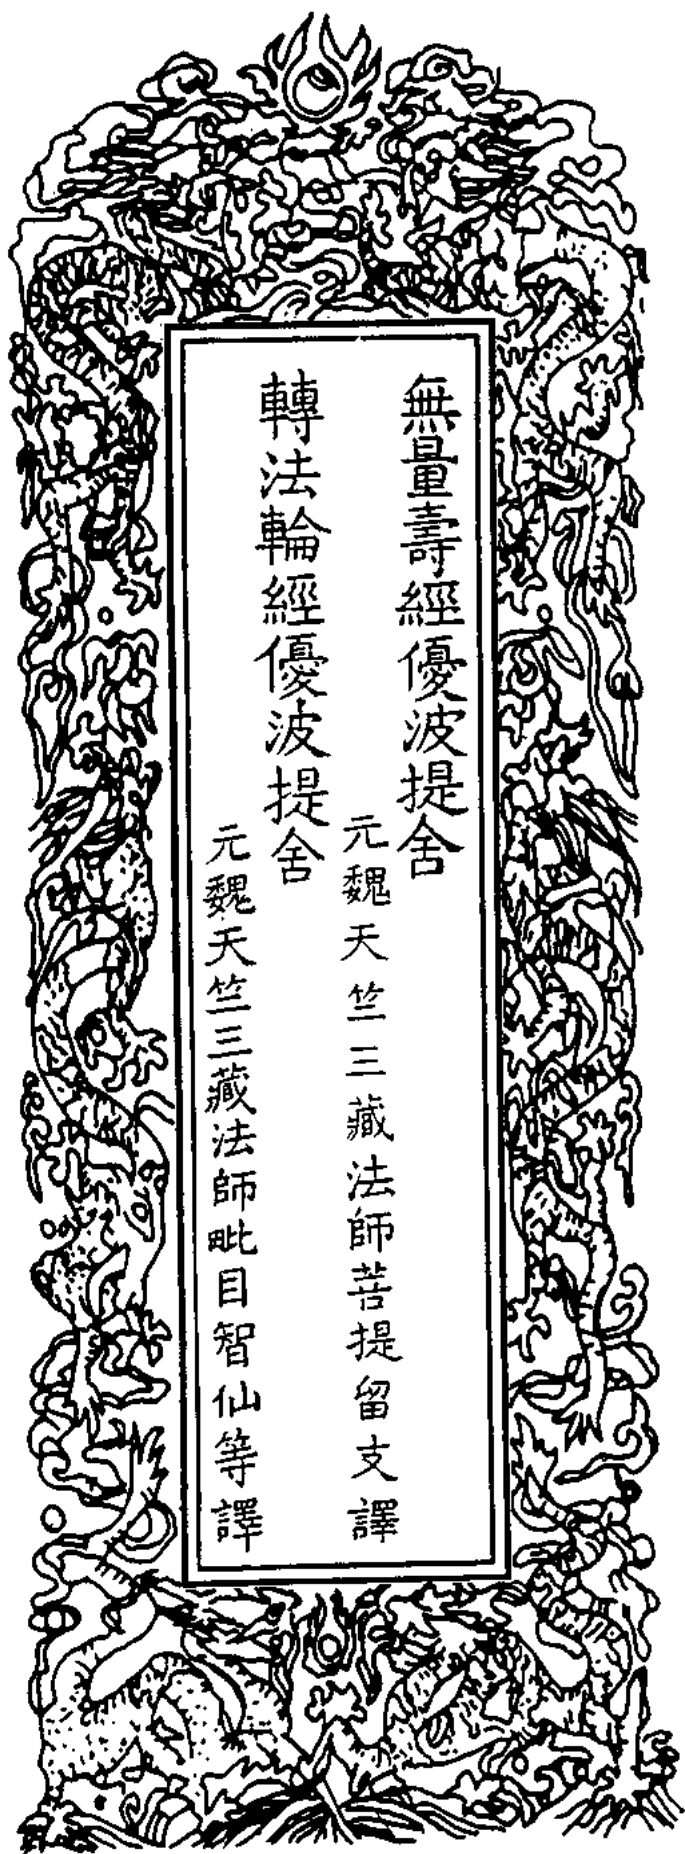 無量壽經優波提舍
元魏天竺三藏法師菩提留支譯
轉法輪經優波提舍
元魏天竺三藏法師毗目智仙等譯